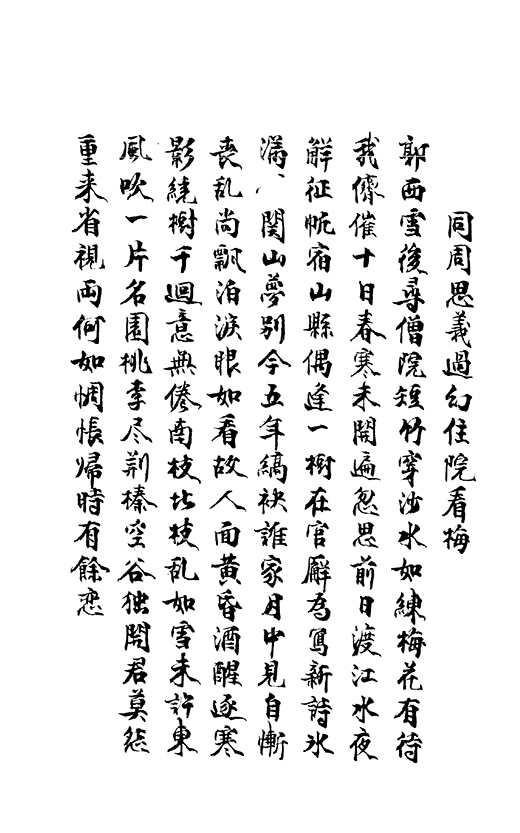 同周思義過幻住院看梅
郭西雪後尋僧院短竹穿沙水如練梅花有待
我儕催十日春寒未開遍忽思前日渡江水夜
解征帆宿山縣偶逢一樹在官廨為寫新詩氷
滿、関山夢别今五年縞袂誰家月中見自慚
喪乱尚飄泊淚眼如看故人面黄昏酒醒逐寒
影繞樹千迴意無倦南枝北枝乱如雪未許東
風吹一片名園桃李尽荊榛空谷独開君莫怨
重来省視両何如惆悵帰時有餘恋